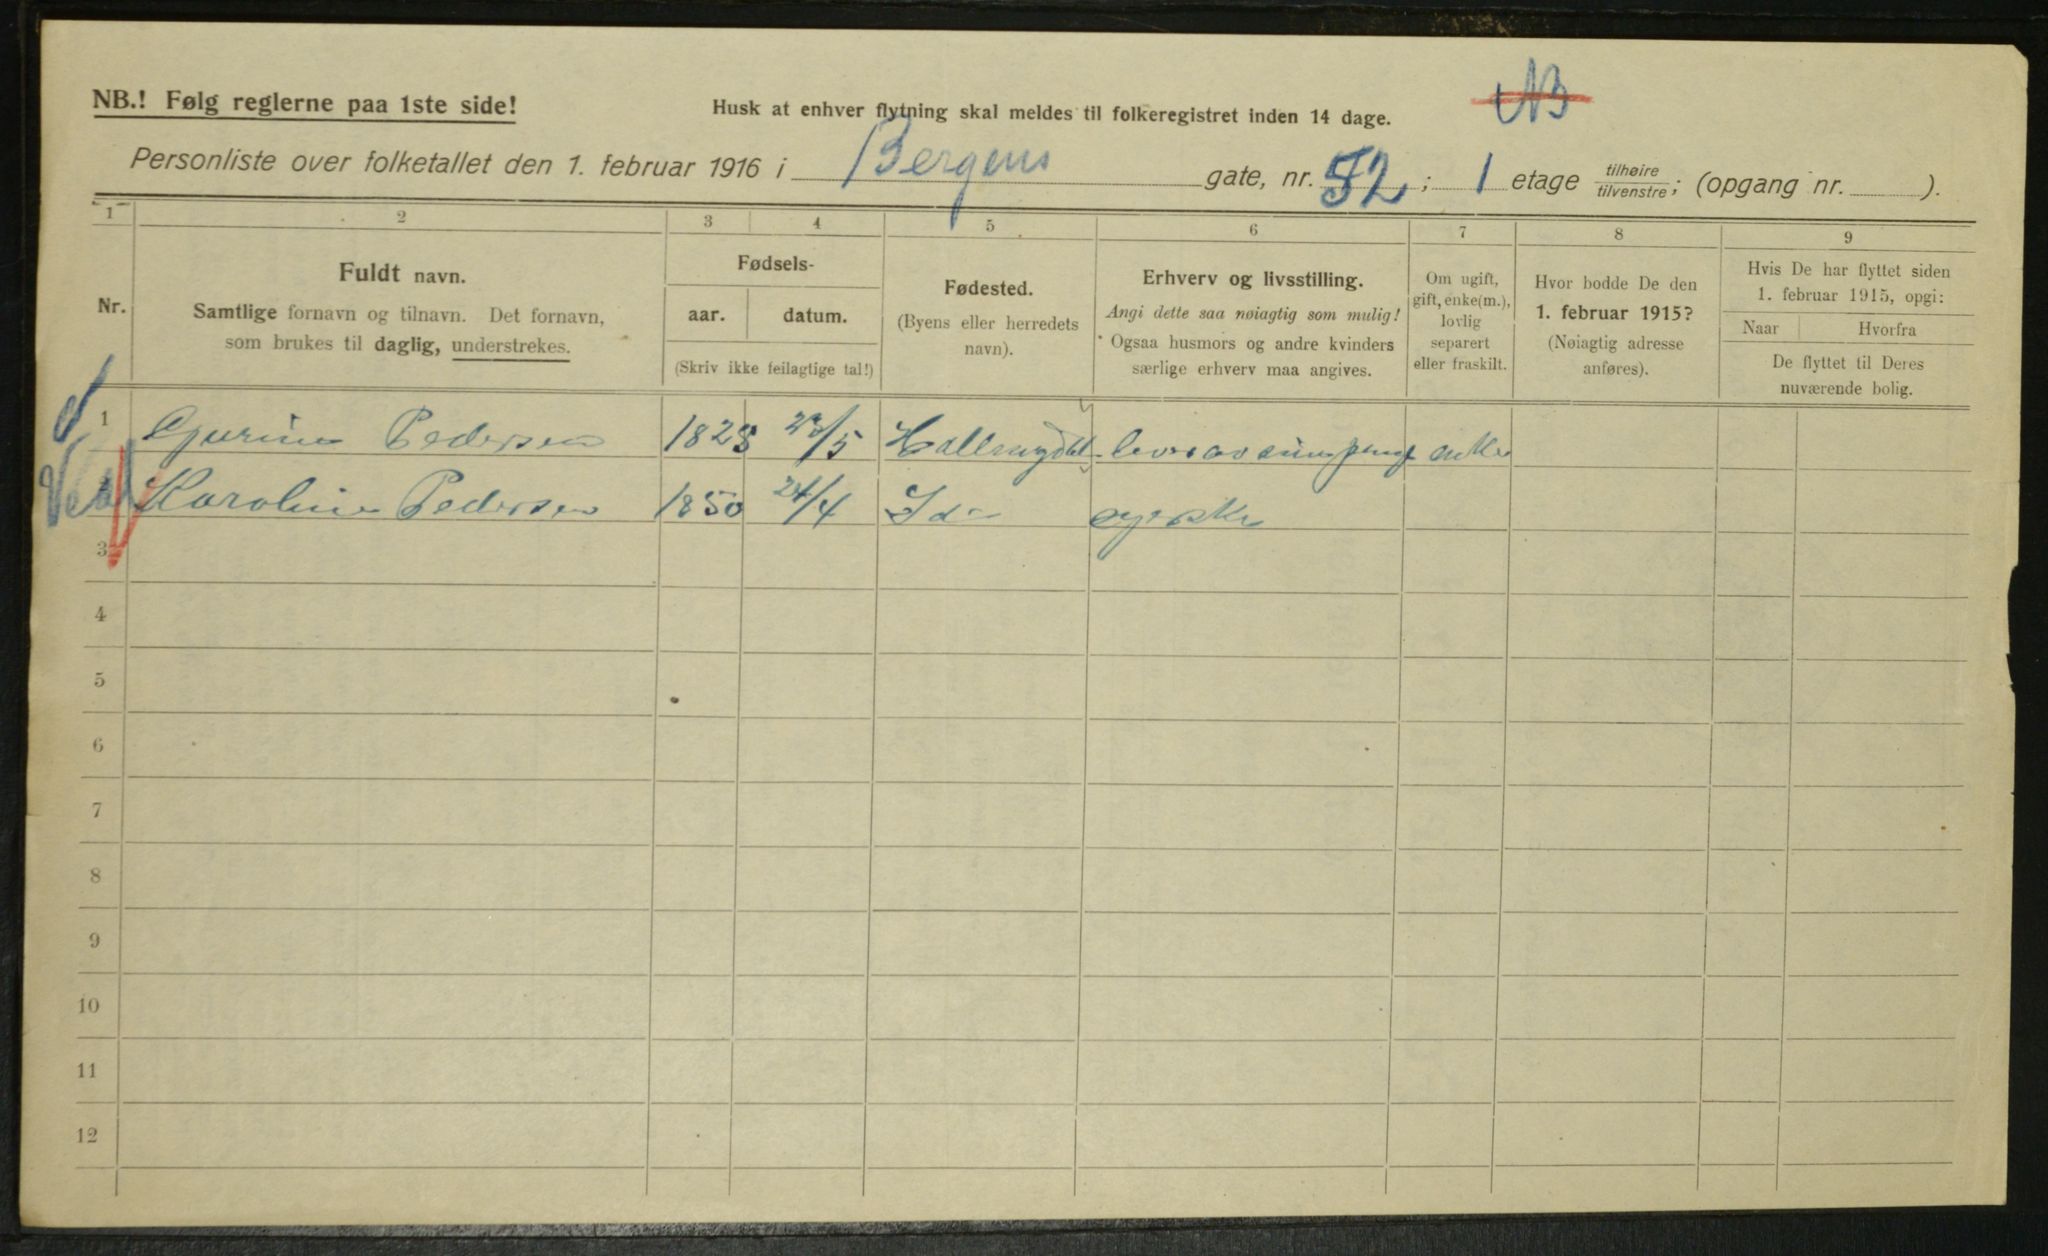 NB.! Følg reglerne paa 1ste side!
Husk at enhver flytning skal meldes til folkeregistret inden 14 dage.
NB
Personliste over folketallet den 1. februar 1916 i Bergens gate, nr. 52; 1 etage tilhøire tilvenstre; (opgang nr. ).
1 2 3 4 5 6 7 8 9
Nr.
Fuldt navn.
Samtlige fornavn og tilnavn. Det fornavn,
som brukes til daglig, understrekes.
Fødsels-
aar. datum.
(Skriv ikke feilagtige tal!)
Fødested.
(Byens eller herredets
navn).
Erhverv og livsstilling.
Angi dette saa nøiagtig som mulig!
Ogsaa husmors og andre kvinders
særlige erhverv maa angives.
Om ugift,
gift, enke(m.),
lovlig
separert
eller fraskilt.
Hvor bodde De den
1. februar 1915?
(Nøiagtig adresse
anføres).
Hvis De har flyttet siden
1. februar 1915, opgi:
Naar Hvorfra
De flyttet til Deres
nuværende bolig.
1 Gurine Pedersen 1828 23/5 lever av sine penge enke
Karoline Pedersen 1850 24/4 Ide syerske
3
4
5
6
7
8
9
10
11
12